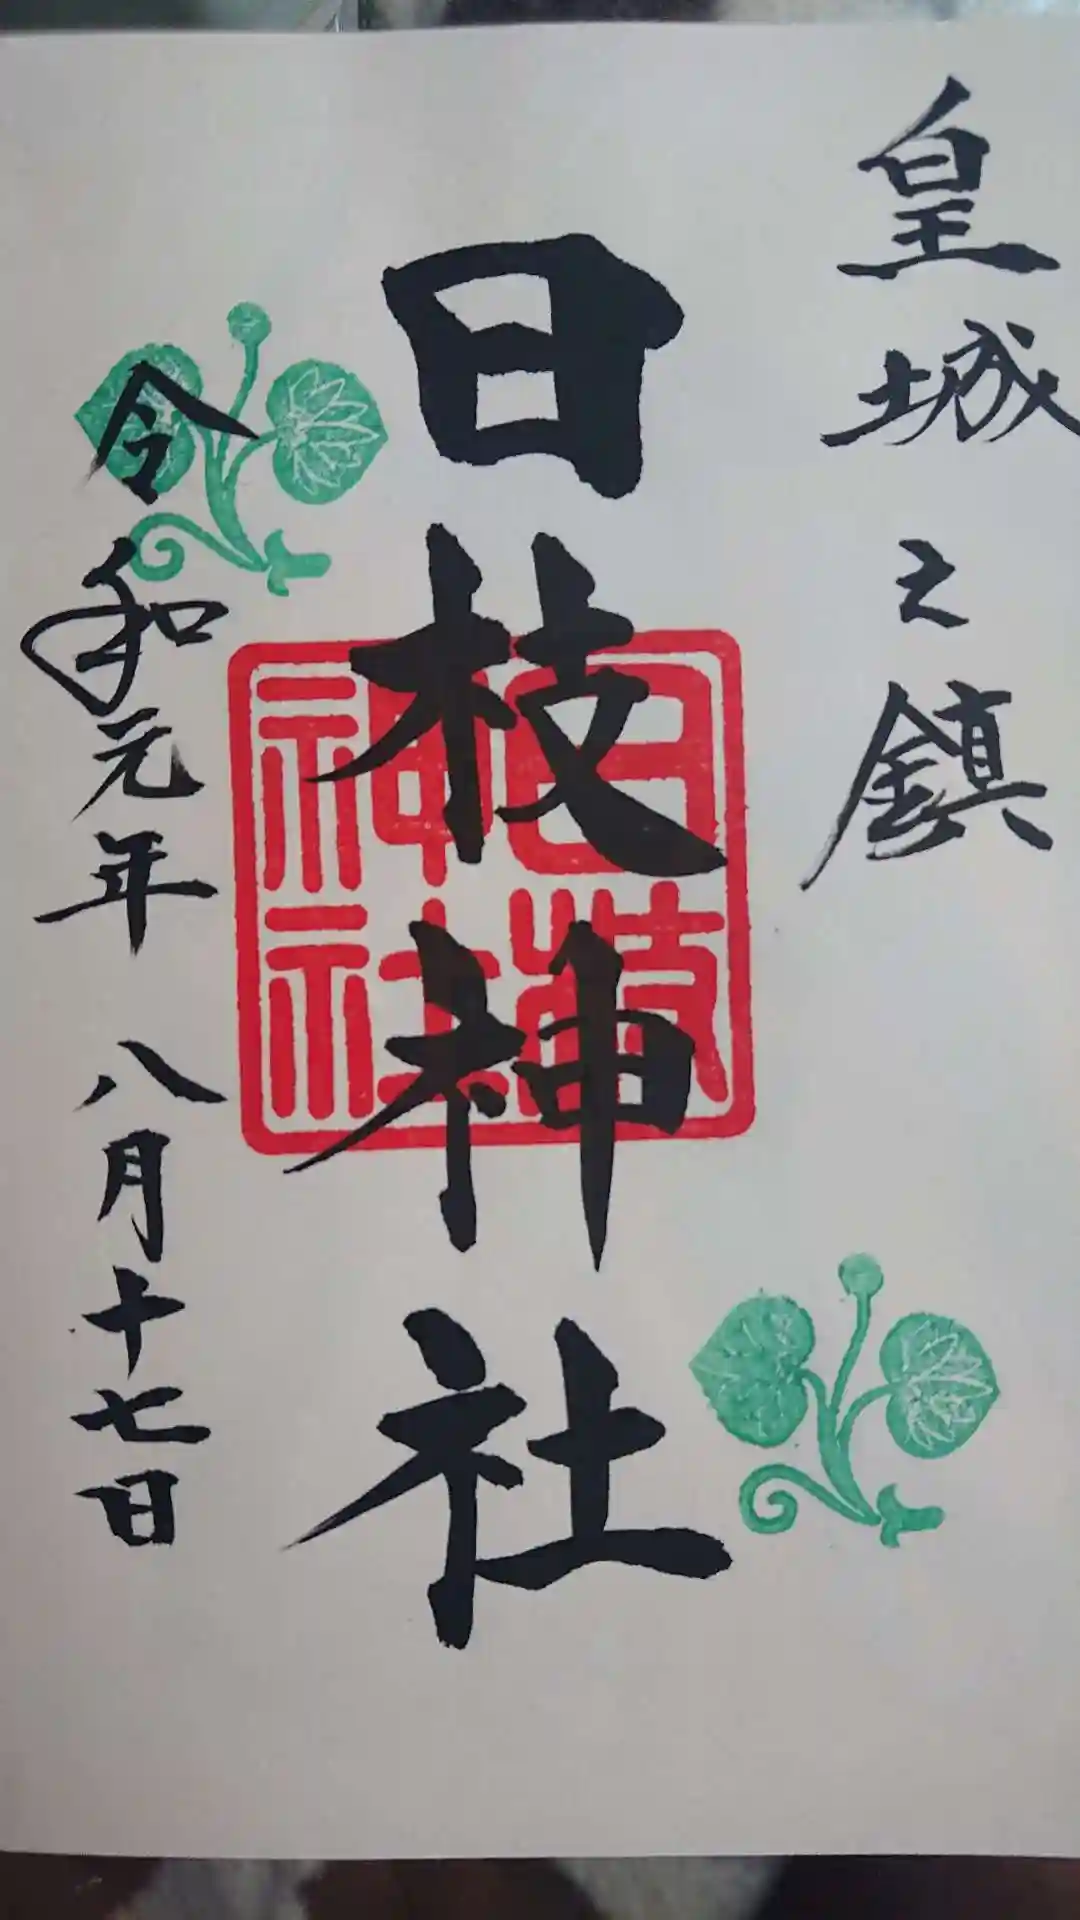 皇城之鎮
日枝神社
日枝神社
令和元年 八月十七日